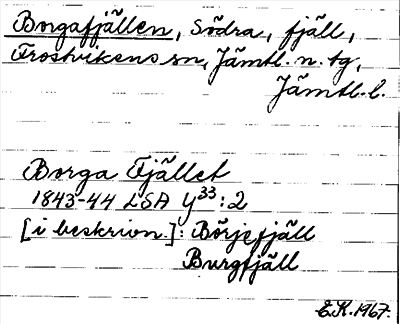 Borgafjällen, Södra, fjäll,
Frostvikens sn, Jämtl. n. tg,
Jämtl. l.
Borga Fjället
1843-44 LSA Y³³:2
[i beskrivn.]: Börjefjäll
Burgfjäll
E.K. 1967.